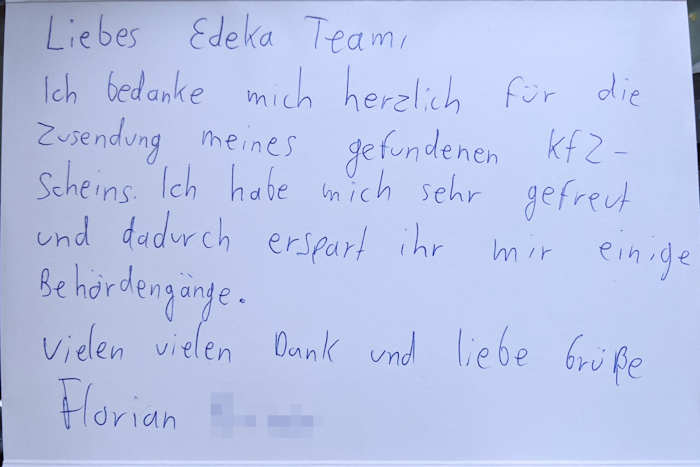 Liebes Edeka Team,
Ich bedanke mich herzlich für die
Zusendung meines gefundenen KfZ-
Scheins. Ich habe mich sehr gefreut
und dadurch erspart ihr mir einige
Behördengänge.
Vielen vielen Dank und liebe Grüße
Florian